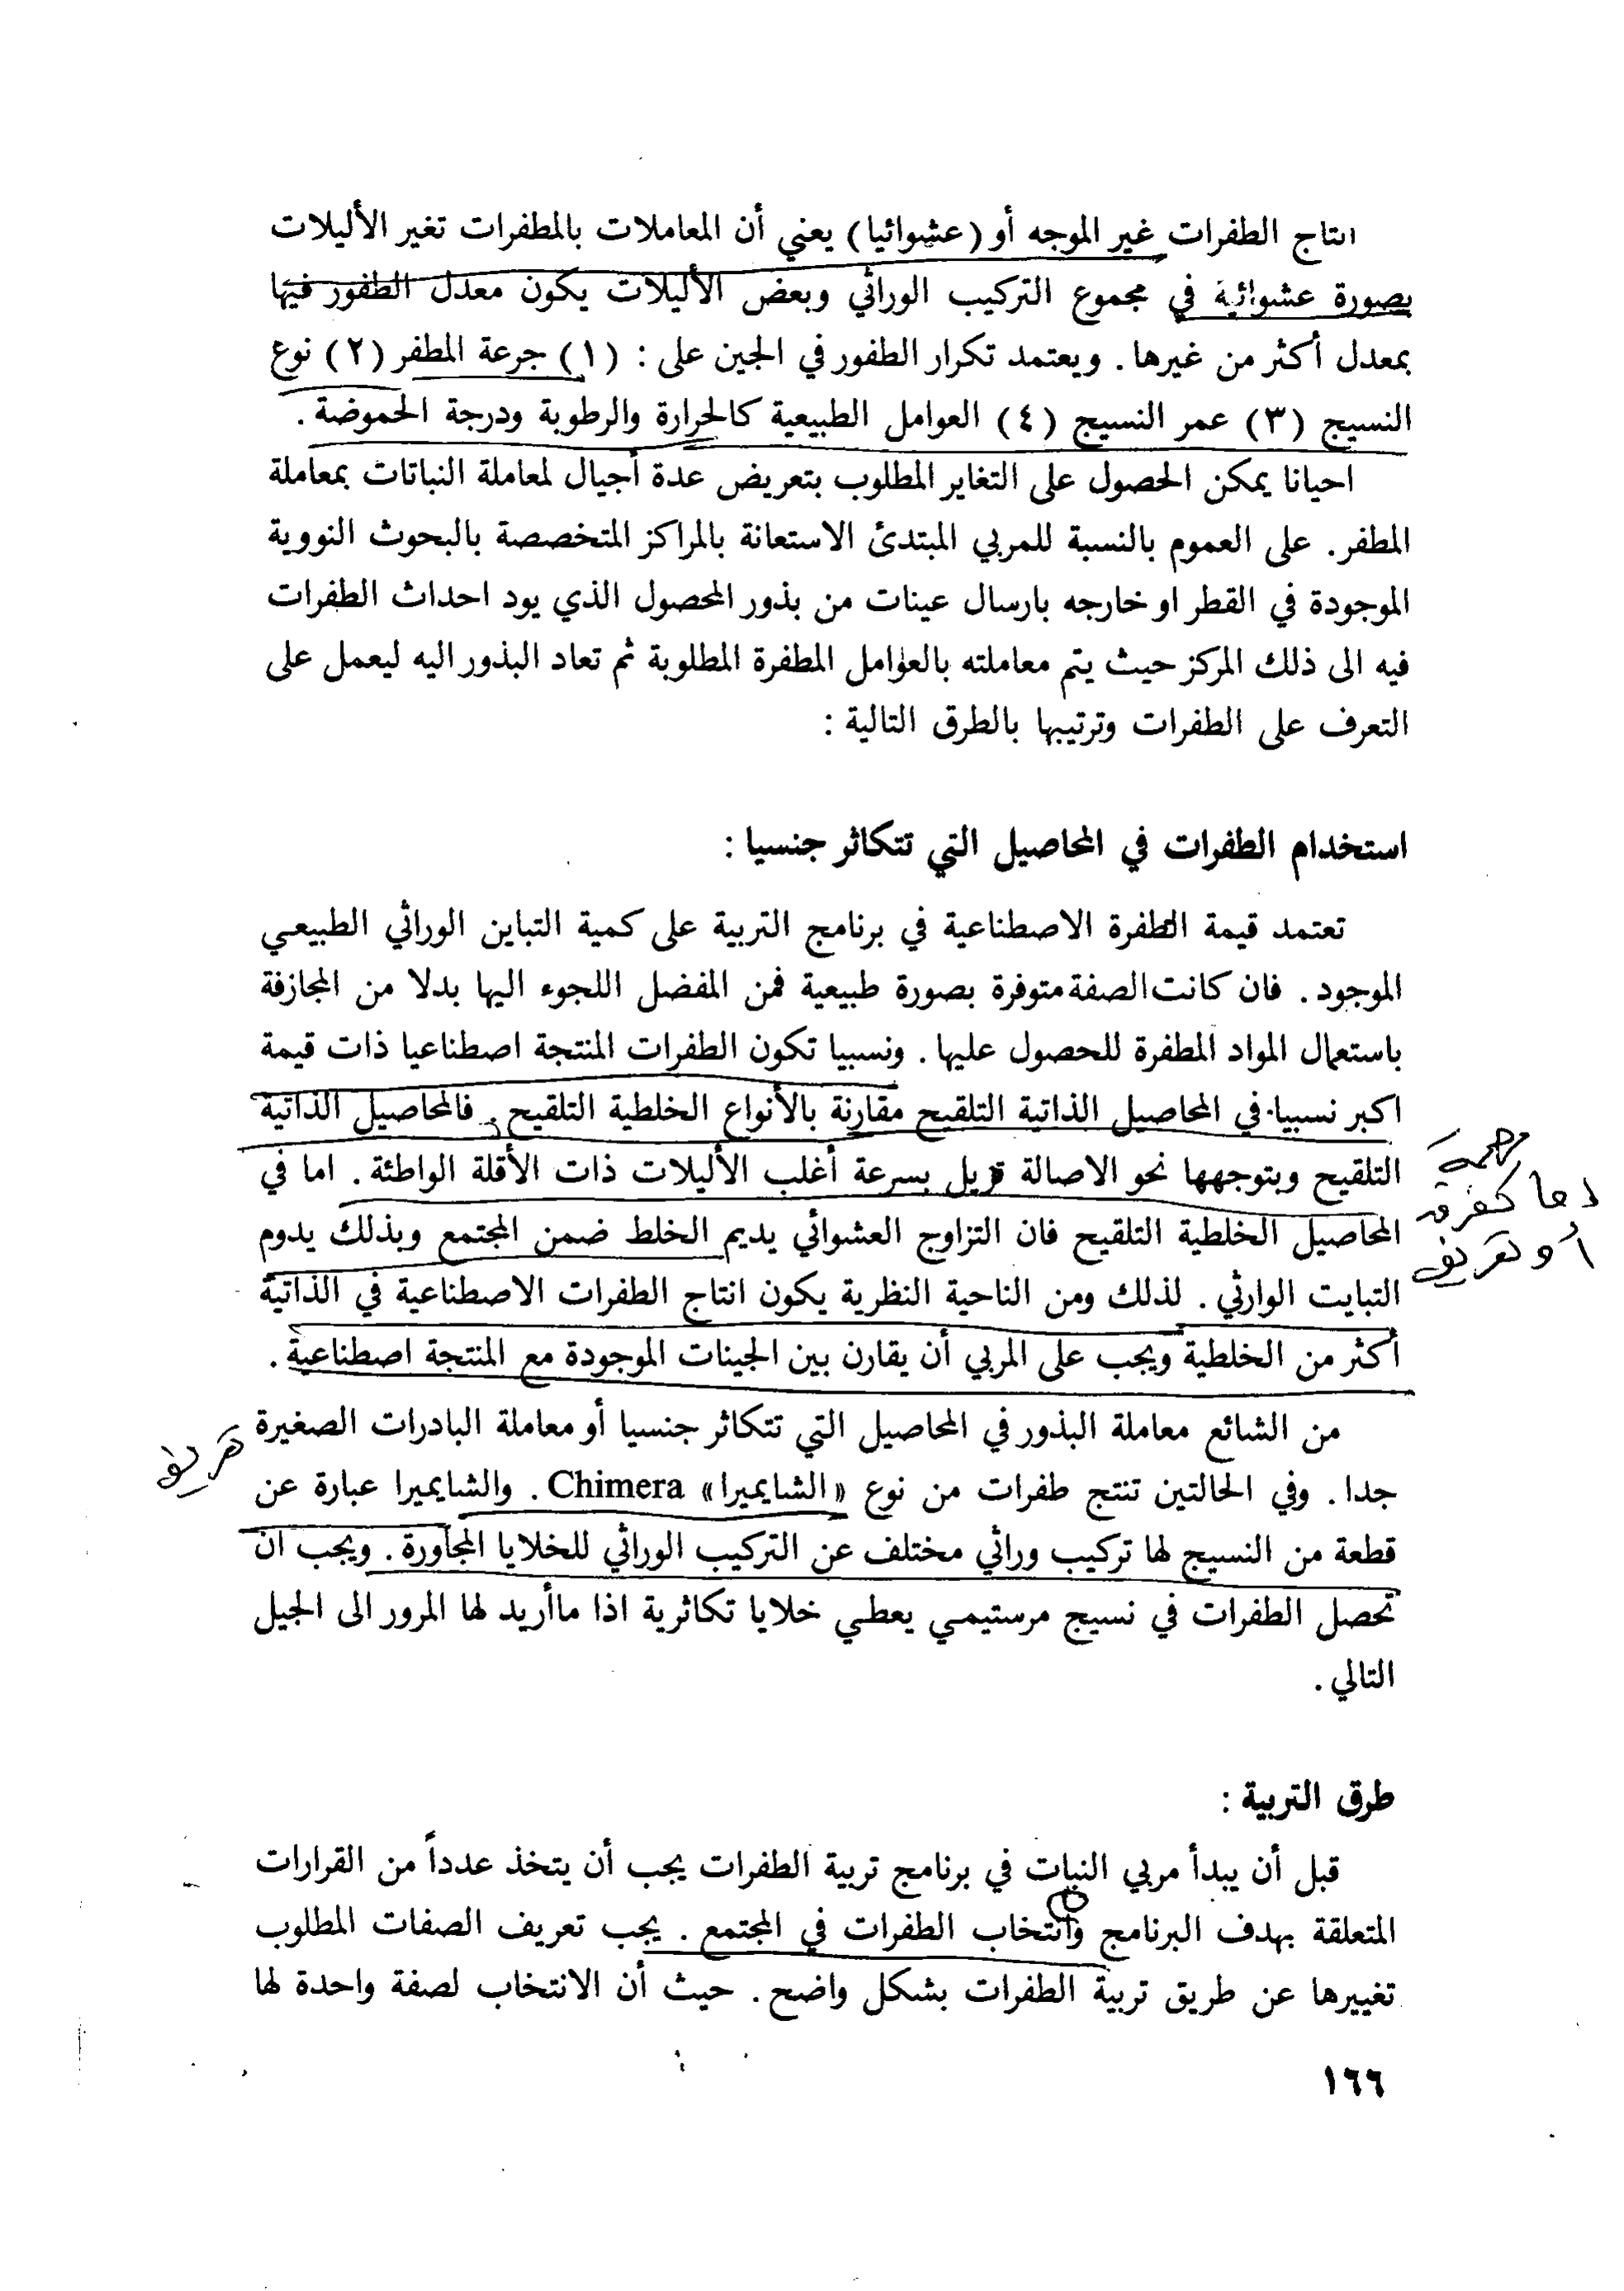 انتاج الطفرات غير الموجه أو (عشوائيا) يعني أن المعاملات بالمطفرات تغير الأليلات
بصورة عشوائية في مجموع التركيب الوراثي وبعض الأليلات يكون معدل الطفور فيها
بمعدل أكثر من غيرها . ويعتمد تكرار الطفور في الجين على : (١) جرعة المطفر (٢) نوع
النسيج (٣) عمر النسيج (٤) العوامل الطبيعية كالحرارة والرطوبة ودرجة الحموضة .
احيانا يمكن الحصول على التغاير المطلوب بتعريض عدة أجيال لمعاملة النباتات بمعاملة
المطفر. على العموم بالنسبة للمربي المبتدئ الاستعانة بالمراكز المتخصصة بالبحوث النووية
الموجودة في القطر او خارجه بارسال عينات من بذور المحصول الذي يود احداث الطفرات
فيه الى ذلك المركز حيث يتم معاملته بالعوامل المطفرة المطلوبة ثم تعاد البذور اليه ليعمل على
التعرف على الطفرات وترتيبها بالطرق التالية :
استخدام الطفرات في المحاصيل التي تتكاثر جنسيا :
تعتمد قيمة الطفرة الاصطناعية في برنامج التربية على كمية التباين الوراثي الطبيعي
الموجود . فان كانت الصفة متوفرة بصورة طبيعية فمن المفضل اللجوء اليها بدلا من المجازفة
باستعمال المواد المطفرة للحصول عليها . ونسبيا تكون الطفرات المنتجة اصطناعيا ذات قيمة
اكبر نسبيا في المحاصيل الذاتية التلقيح مقارنة بالأنواع الخلطية التلقيح . فالمحاصيل الذاتية
التلقيح وبتوجهها نحو الاصالة تزيل بسرعة أغلب الأليلات ذات الأقلة الواطئة . اما في
المحاصيل الخلطية التلقيح فان التزاوج العشوائي يديم الخلط ضمن المجتمع وبذلك يدوم
التبايت الوارثي . لذلك ومن الناحية النظرية يكون انتاج الطفرات الاصطناعية في الذاتية
أكثر من الخلطية ويجب على المربي أن يقارن بين الجينات الموجودة مع المنتجة اصطناعية .
مهمة
اما كفرق
أو تعريف
من الشائع معاملة البذور في المحاصيل التي تتكاثر جنسيا أو معاملة البادرات الصغيرة
جدا . وفي الحالتين تنتج طفرات من نوع «الشايميرا» Chimera . والشايميرا عبارة عن
قطعة من النسيج لها تركيب وراثي مختلف عن التركيب الوراثي للخلايا المجاورة . ويجب ان
تحصل الطفرات في نسيج مرستيمي يعطي خلايا تكاثرية اذا ماأريد لها المرور الى الجيل
التالي .
تعريف
طرق التربية :
قبل أن يبدأ مربي النبات في برنامج تربية الطفرات يجب أن يتخذ عدداً من القرارات
المتعلقة بهدف البرنامج وانتخاب الطفرات في المجتمع . يجب تعريف الصفات المطلوب
تغييرها عن طريق تربية الطفرات بشكل واضح . حيث أن الانتخاب لصفة واحدة لها
١٦٦